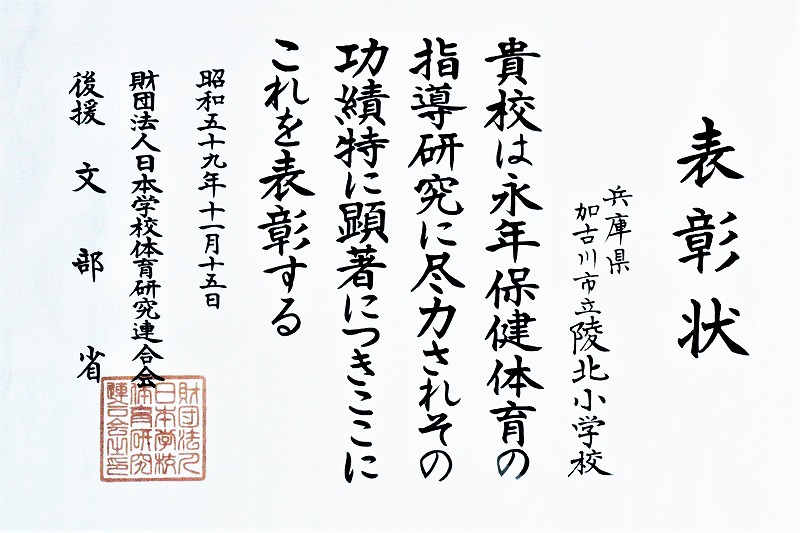 表彰状
兵庫県
加古川市立陵北小学校
貴校は永年保健体育の
指導研究に尽力されその
功績特に顕著につきここに
これを表彰する
昭和五十九年十一月十五日
財団法人日本学校体育研究連合会
後援 文部省
財団法人
日本学校
体育研究
連合会之印